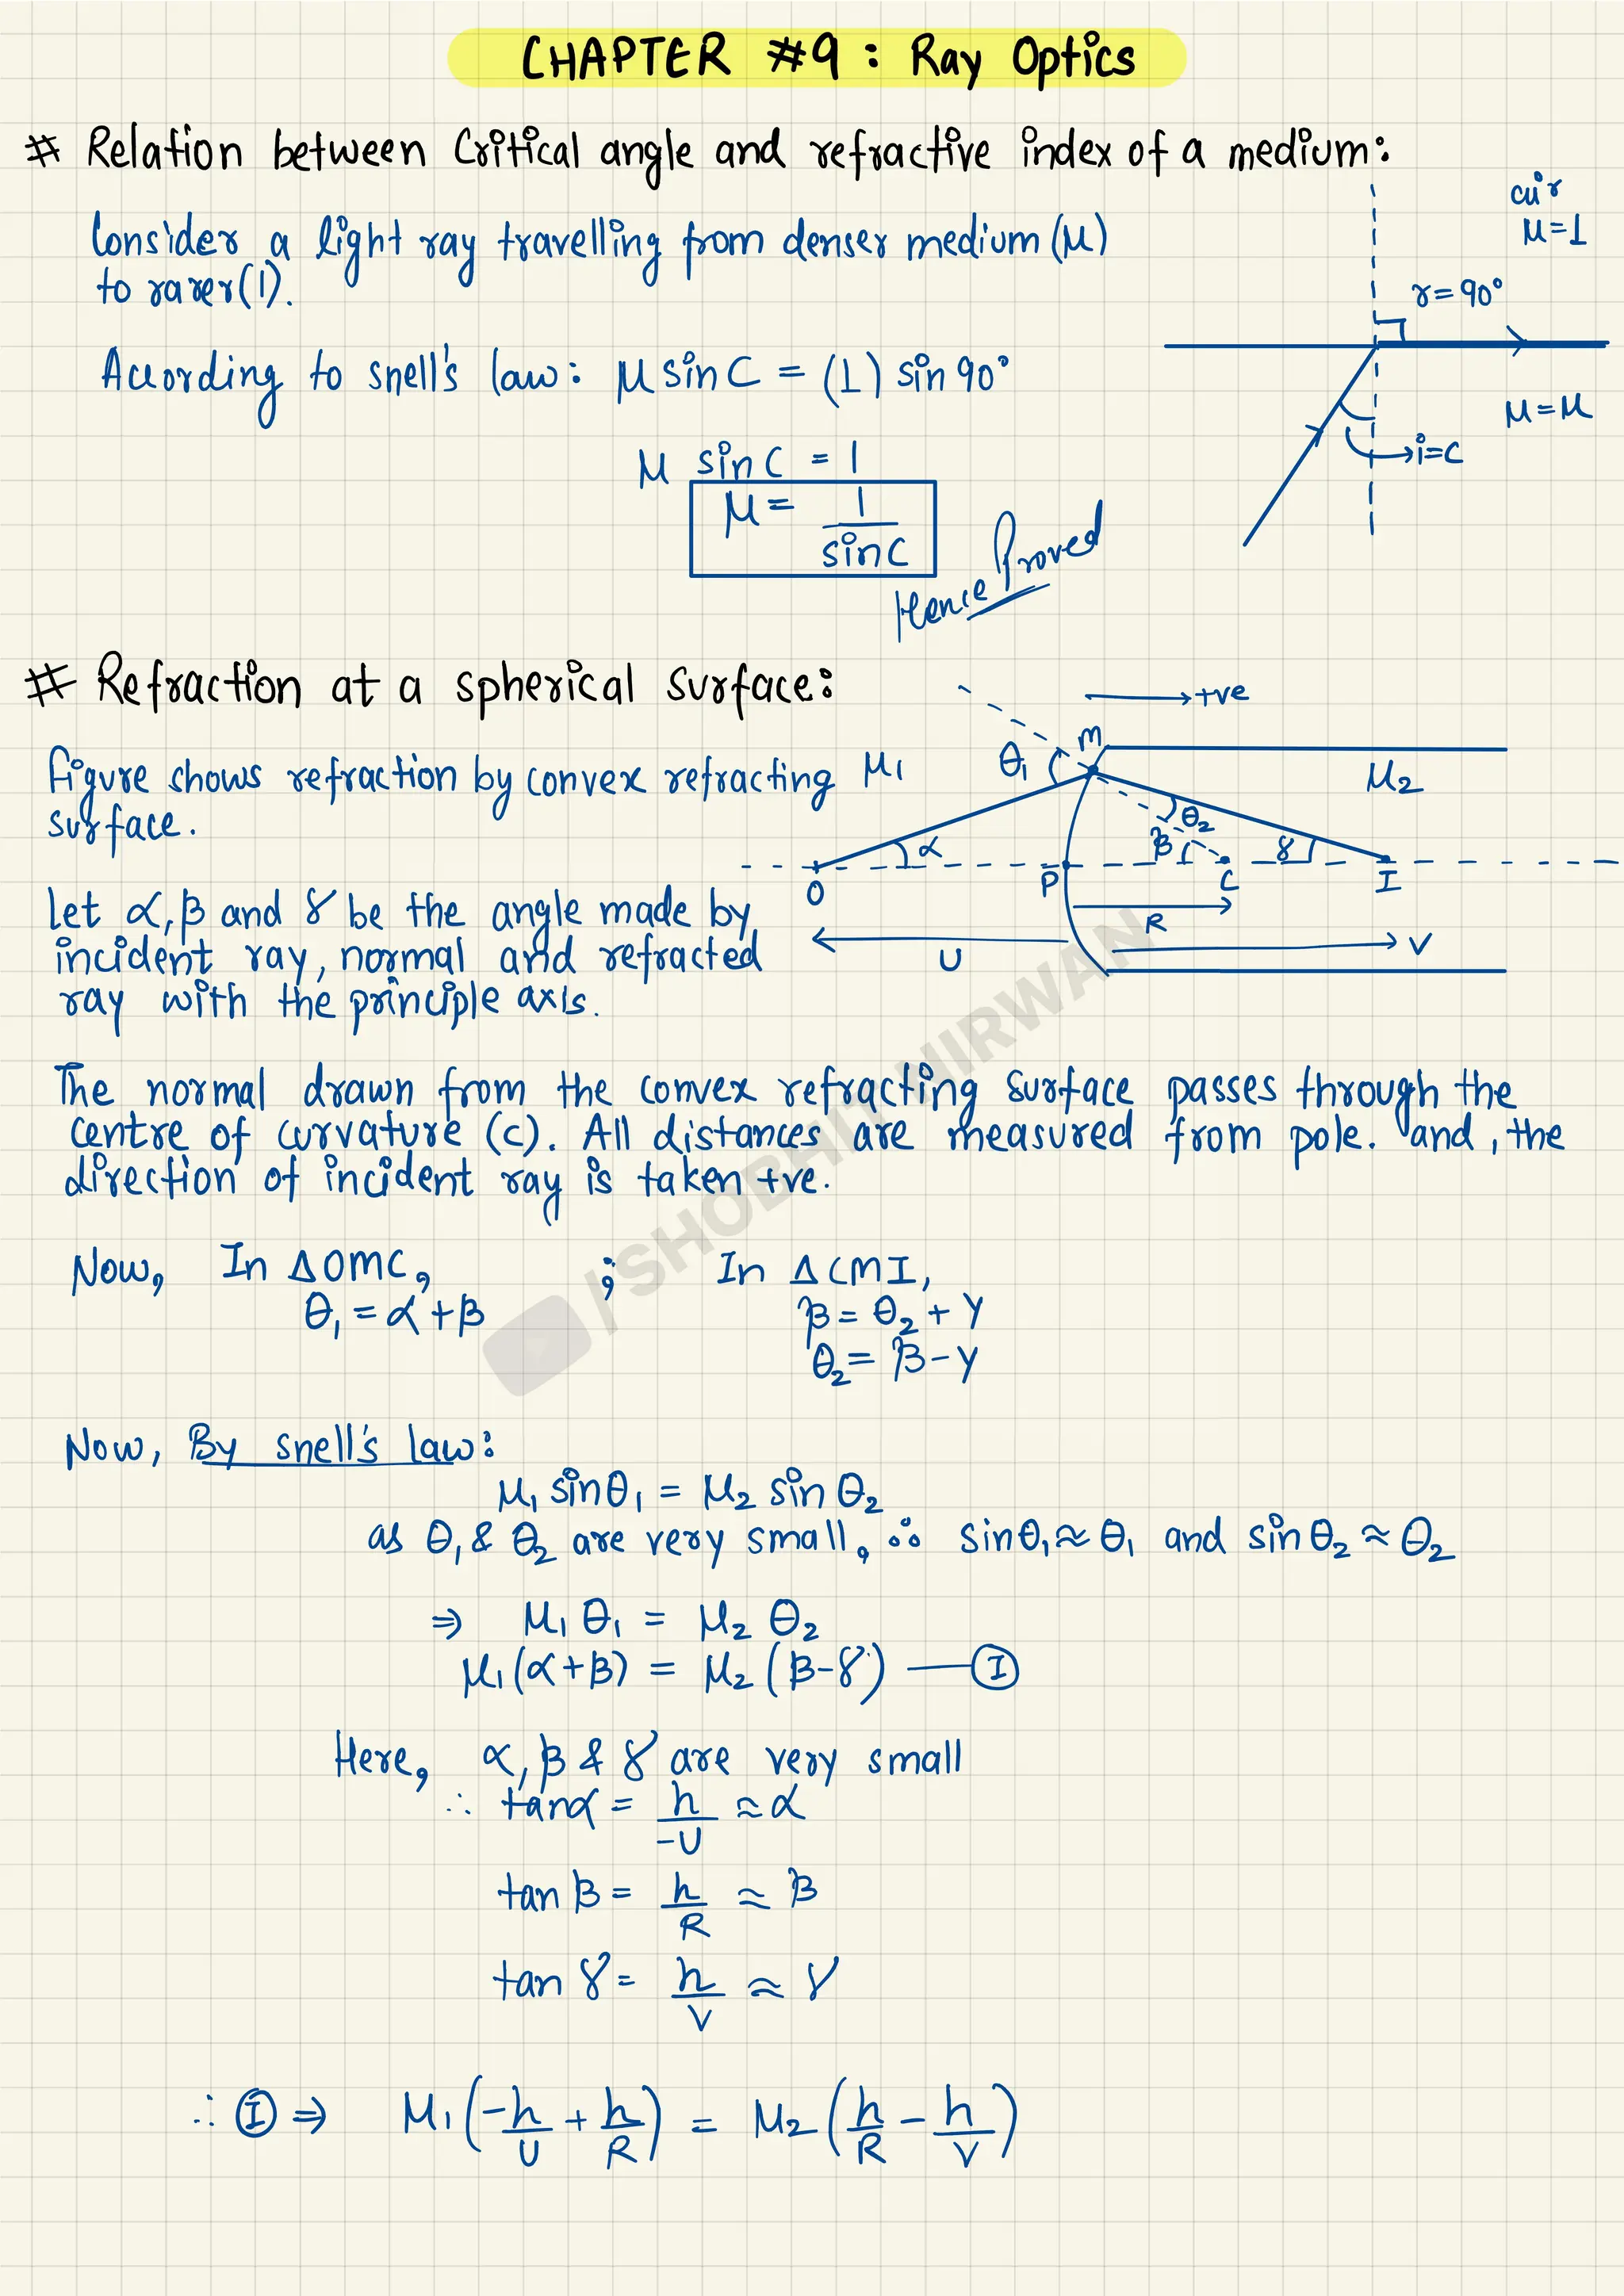 CHAPTER #9 : Ray Optics
# Relation between Critical angle and refractive index of a medium:
Consider a light ray travelling from denser medium (μ)
to rarer (1).
According to snell's law: μ sin C = (1) sin 90°
μ sin C = 1
μ = 1/sin C
Hence Proved
air
μ=1
r=90°
μ=μ
i=C
# Refraction at a spherical surface:
Figure shows refraction by convex refracting
surface.
Let α, β and γ be the angle made by
incident ray, normal and refracted
ray with the principle axis.
+ve
M
θ₁
μ₁
μ₂
θ₂
α
β
γ
O
P
C
I
R
U
V
The normal drawn from the convex refracting surface passes through the
centre of curvature (c). All distances are measured from pole. and, the
direction of incident ray is taken +ve.
Now, In ΔOMC, ; In ΔCMI,
θ₁ = α + β
β = θ₂ + γ
θ₂ = β - γ
Now, By snell's law:
μ₁ sin θ₁ = μ₂ sin θ₂
as θ₁ & θ₂ are very small, ∴ sin θ₁ ≈ θ₁ and sin θ₂ ≈ θ₂
⇒ μ₁ θ₁ = μ₂ θ₂
μ₁ (α+β) = μ₂ (β-γ) — Ⓘ
Here, α, β & γ are very small
∴ tan α = h/-U ≈ α
tan β = h/R ≈ β
tan γ = h/V ≈ γ
∴ Ⓘ ⇒ μ₁ (-h/U + h/R) = μ₂ (h/R - h/V)
/SHOBHIT NIRWAN